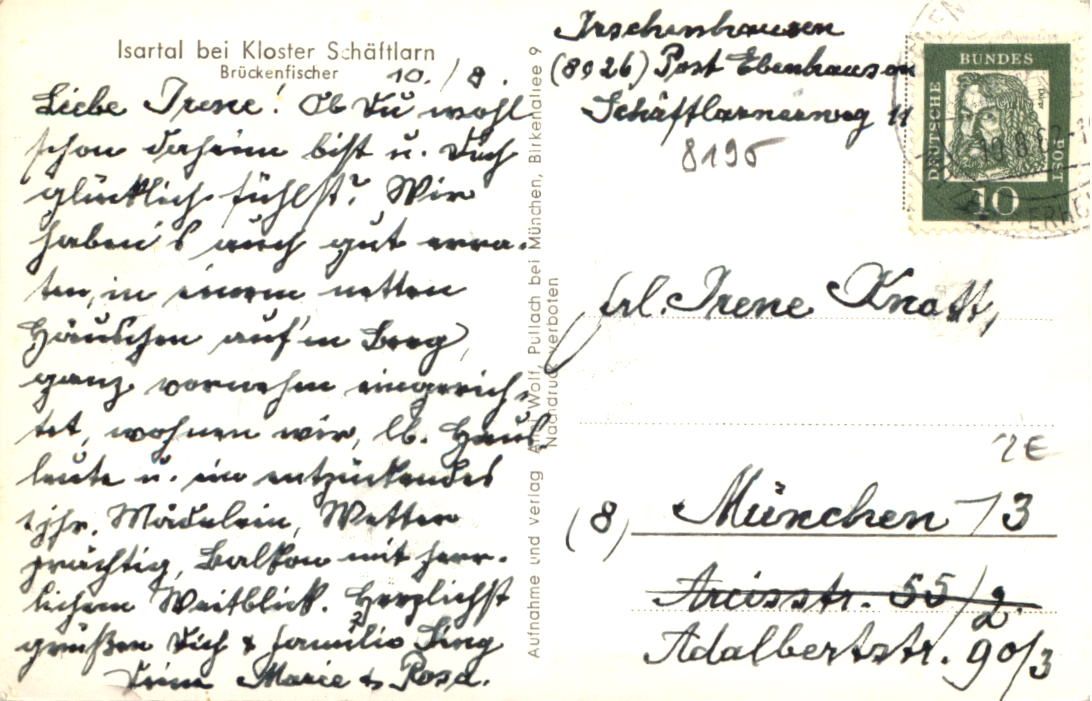 Isartal bei Kloster Schäftlarn
Brückenfischer
10./8.
Liebe Irene! Ob Du wohl
schon daheim bist u. Dich
glücklich fühlst? Wir
haben's auch gut erra-
ten, in einem netten
Häuschen auf'm Berg,
ganz vornehm eingerich-
tet, wohnen wir, lb. Haus-
leute u. ein entzückendes
1jhr. Mädelein, Wetter
prächtig, Balkon mit herr-
lichem Weitblick. Herzlichst
grüßen Dich & Familie
Deine Marie & Rosa.
Aufnahme und Verlag Wolf, Pullach bei München, Birkenallee 9
Nachdruck verboten
Irschenhausen
(8026) Post Ebenhausen
Schäftlarnerweg 11
8195
DEUTSCHE BUNDESPOST
10
Frl. Irene Knott,
(8) München 13
Arcisstr. 55/2.
Adalbertstr. 90/3